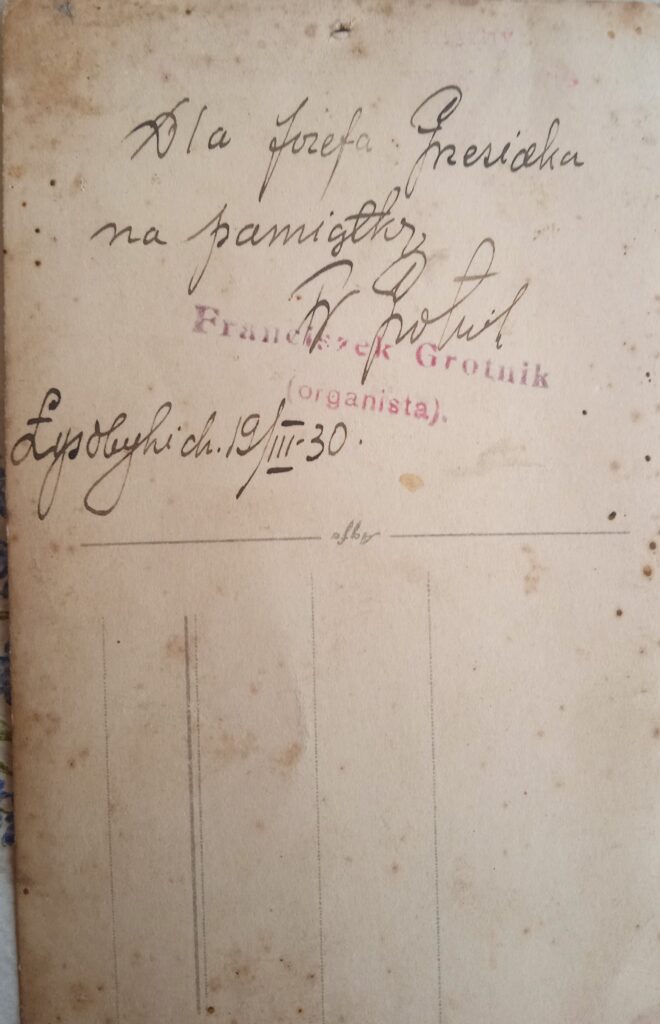 Dla Józefa Grzesiaka
na pamiątkę
Fr Grotnik
Franciszek Grotnik
(organista).
Łysobyki d. 19/III-30.
Agfa